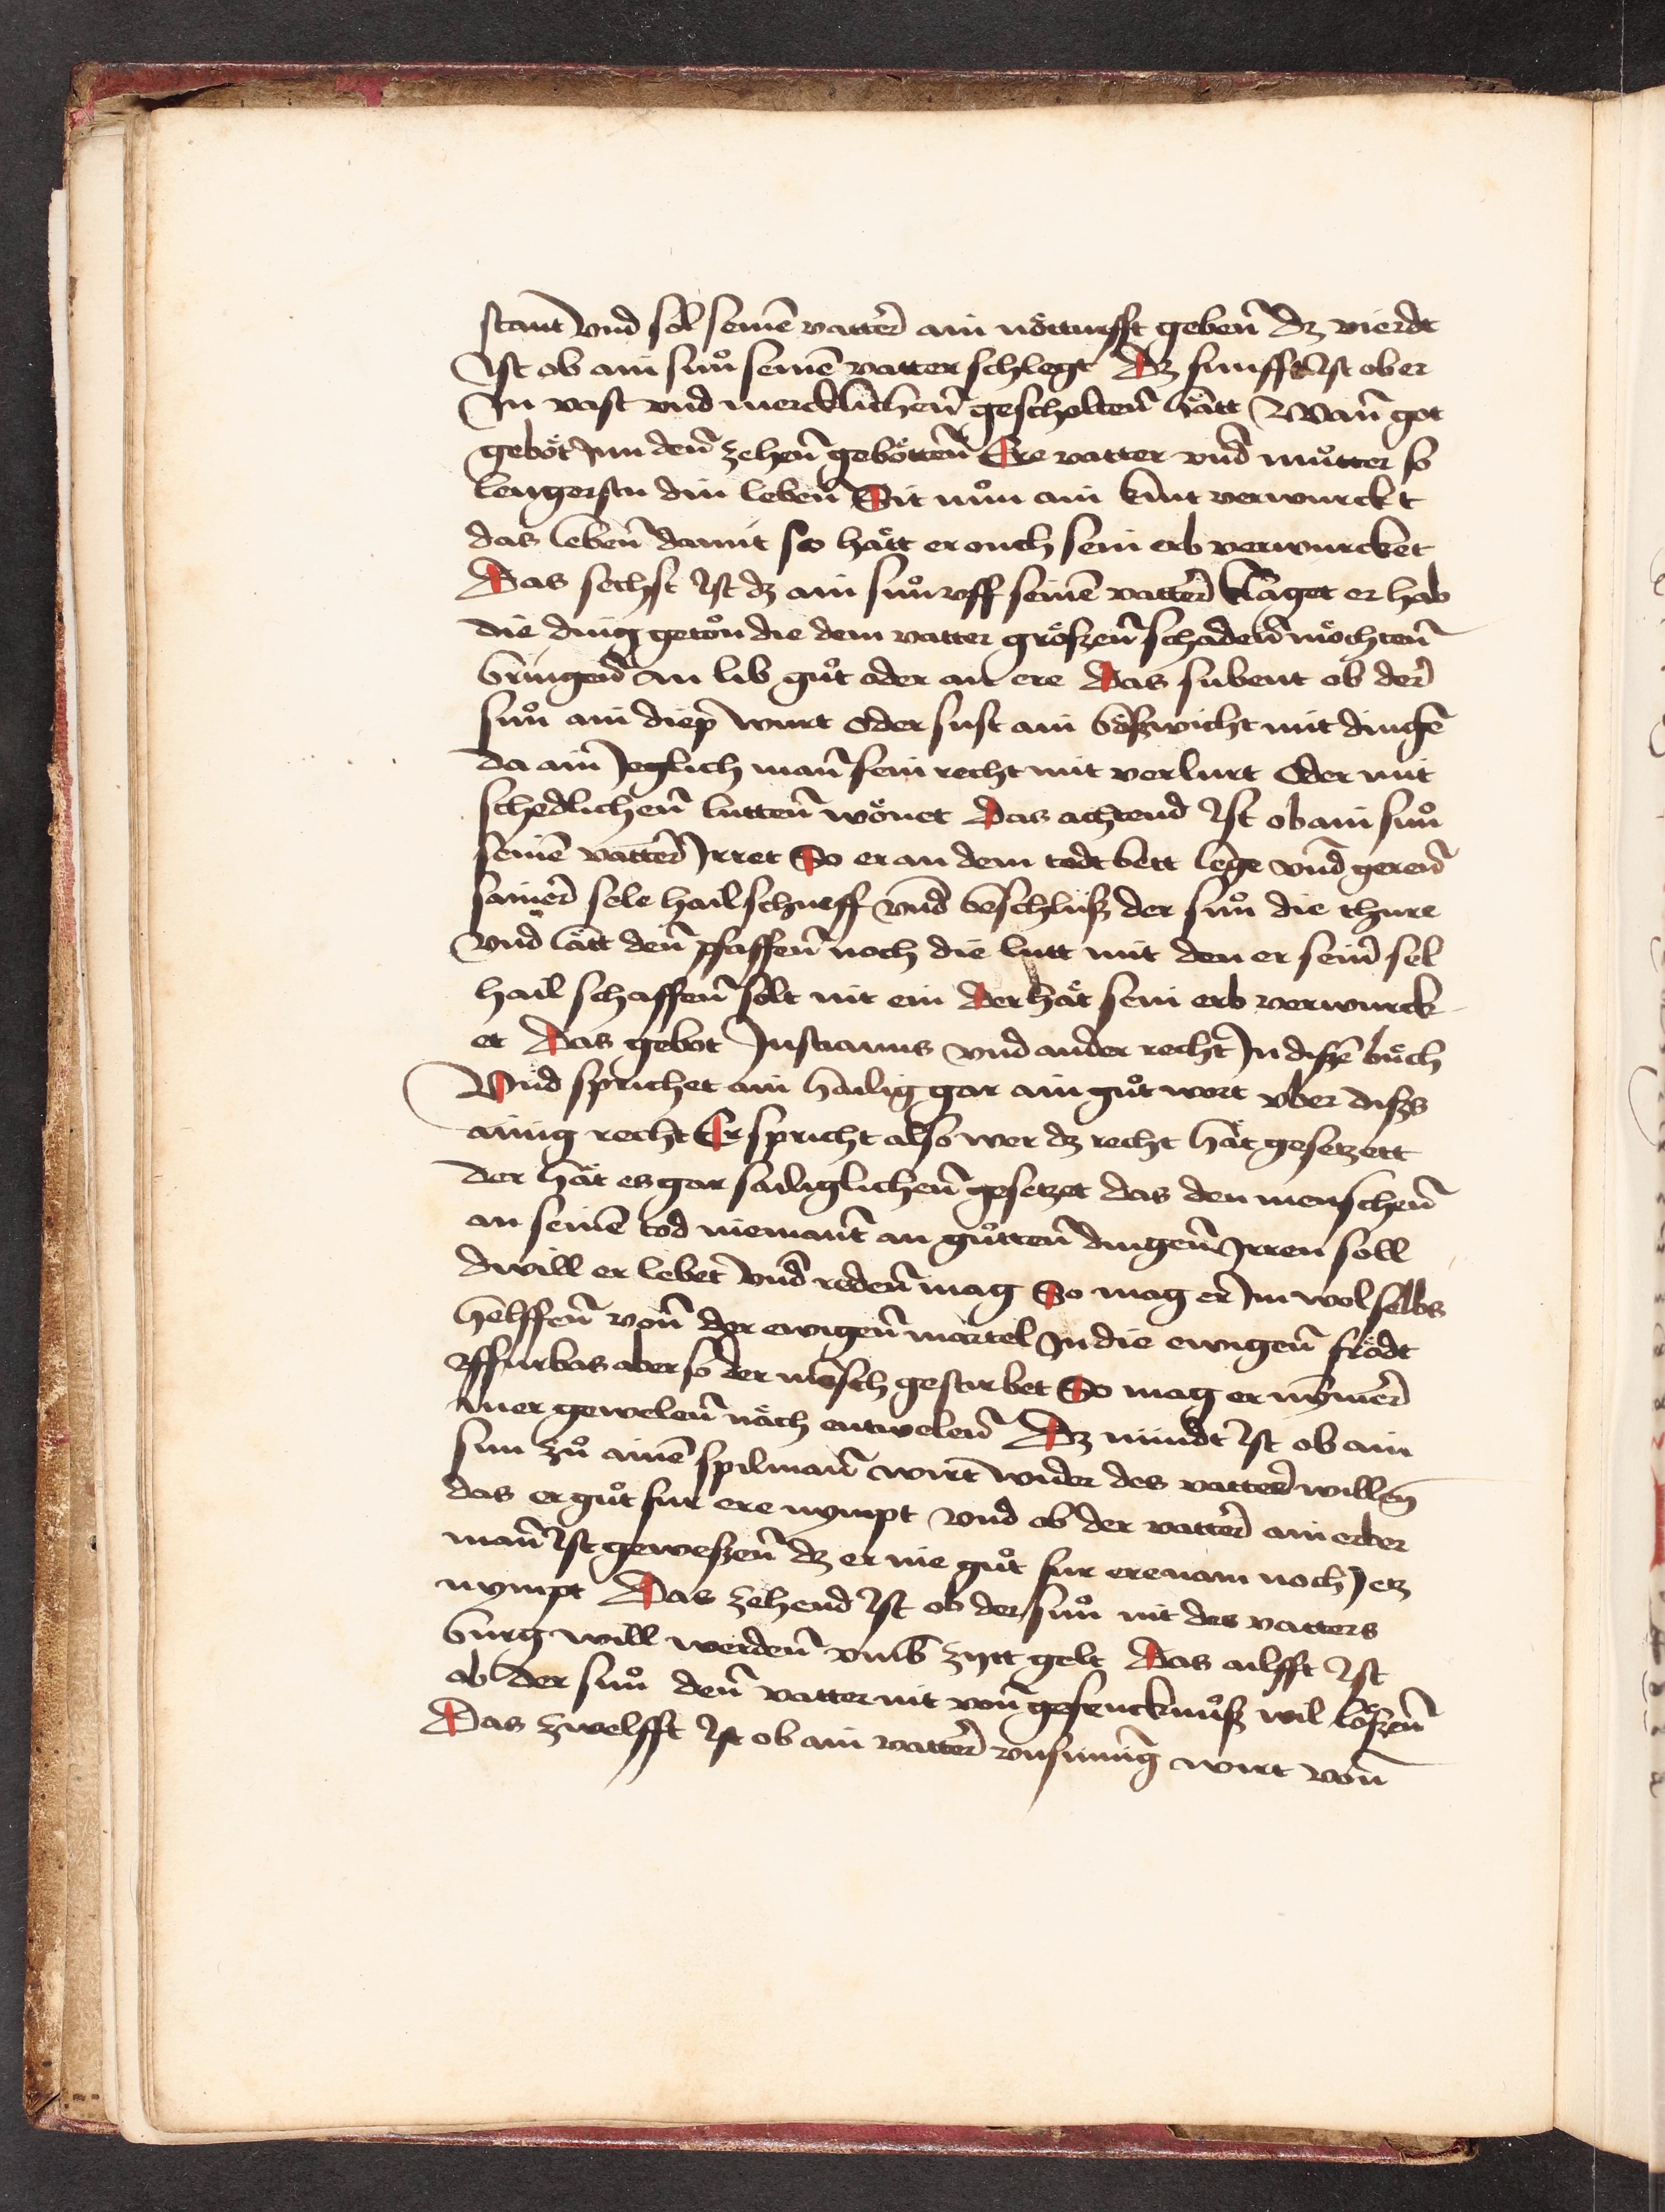 stant vnd sol seinē vatter̄ ain nötturfft geben̄ dz vierdt
Ist ob ain sun̊ seinē vatter schlegt Dz funfft Ist ob er
In vast vnd mercklichen̄ gescholten̄ hätt Wan̄ got
geböt Inn den̄ zehen̄ gebötten̄ Ere vatter vnd můtter so
lengerstu din leben̄ Sit nůn ain kint verwurckt
das leben̄ damit so hätt er ouch sein erb verwurcket
Das sechst Ist dz ain sůn vff seinē vatter̄ klaget er hab
die ding getön die dem vatter gröszen̄ schaden̄ möchten̄
bringen̄ an lib gůt oder an ere Das subent ob der̄
sůn ain diep wurt oder sust ain bößwicht mit dingē
da ain̄ Jeglich man̄ sein recht mit verlurt Oder mit
schedlichen̄ lutten̄ wönet Das achtend Ist ob ain sůn
seinē vatter̄ Irret So er an dem todt bett lege vnd geren̄
sainer̄ sele hail schueff vnd beschlüß der sůn die thure
vnd lätt den̄ pfaffen̄ noch die lutt mit den er sein̄ sel
hail schaffen̄ solt nit ein Der hät sein erb verwurck
et Das gebot Justianus vnd ander recht In disē bůch
Vnd sprichet ain hailig gar ain gůt wort vber diß
ainig recht Er spricht also wer dz recht hät gesetzett
der hät es gar säliglichen̄ gesetzet das den menschen̄
an seinē tod niemant an gůtten̄ dingen̄ Irren soll
dwill er lebet vnd reden̄ mag So mag er Im wol selbs
helffen̄ von̄ der ewigen̄ martel In die ewigen̄ frödt
Vffurbas aber so der mēsch gestirbet So mag er nymer̄
mer gewelen̄ näch entwelen̄ Dz nündt Ist ob ain
sun zů ainē spilman̄ wirt wider des vatter̄ willen̄
das er gůt fur ere nympt vnd ob der vatter̄ ain erber
man̄ Ist gewesen̄ dz er nie gůt fur ere nam noch Jetz
nympt Das zehend Ist ob der sůn nit des vatters
burg will werden̄ vmb zytt gelt Das ailfft Ist
ob der sůn den̄ vatter nit von̄ gefencknůß wil lößen̄
Das zwelfft Ist ob ain vatter̄ vnsinnig wirt von̄